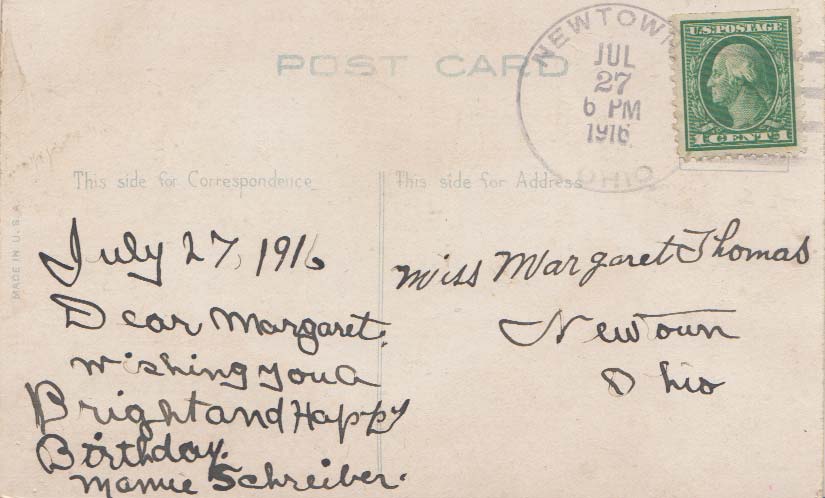 POST CARD
NEWTOWN
JUL
27
6 PM
1916
OHIO
U.S. POSTAGE
1 CENT 1
This side for Correspondence
This side for Address
MADE IN U.S.A.
July 27, 1916
Dear Margaret.
wishing you a
Bright and Happy
Birthday.
Mamie Schreiber.
Miss Margaret Thomas
Newtown
Ohio